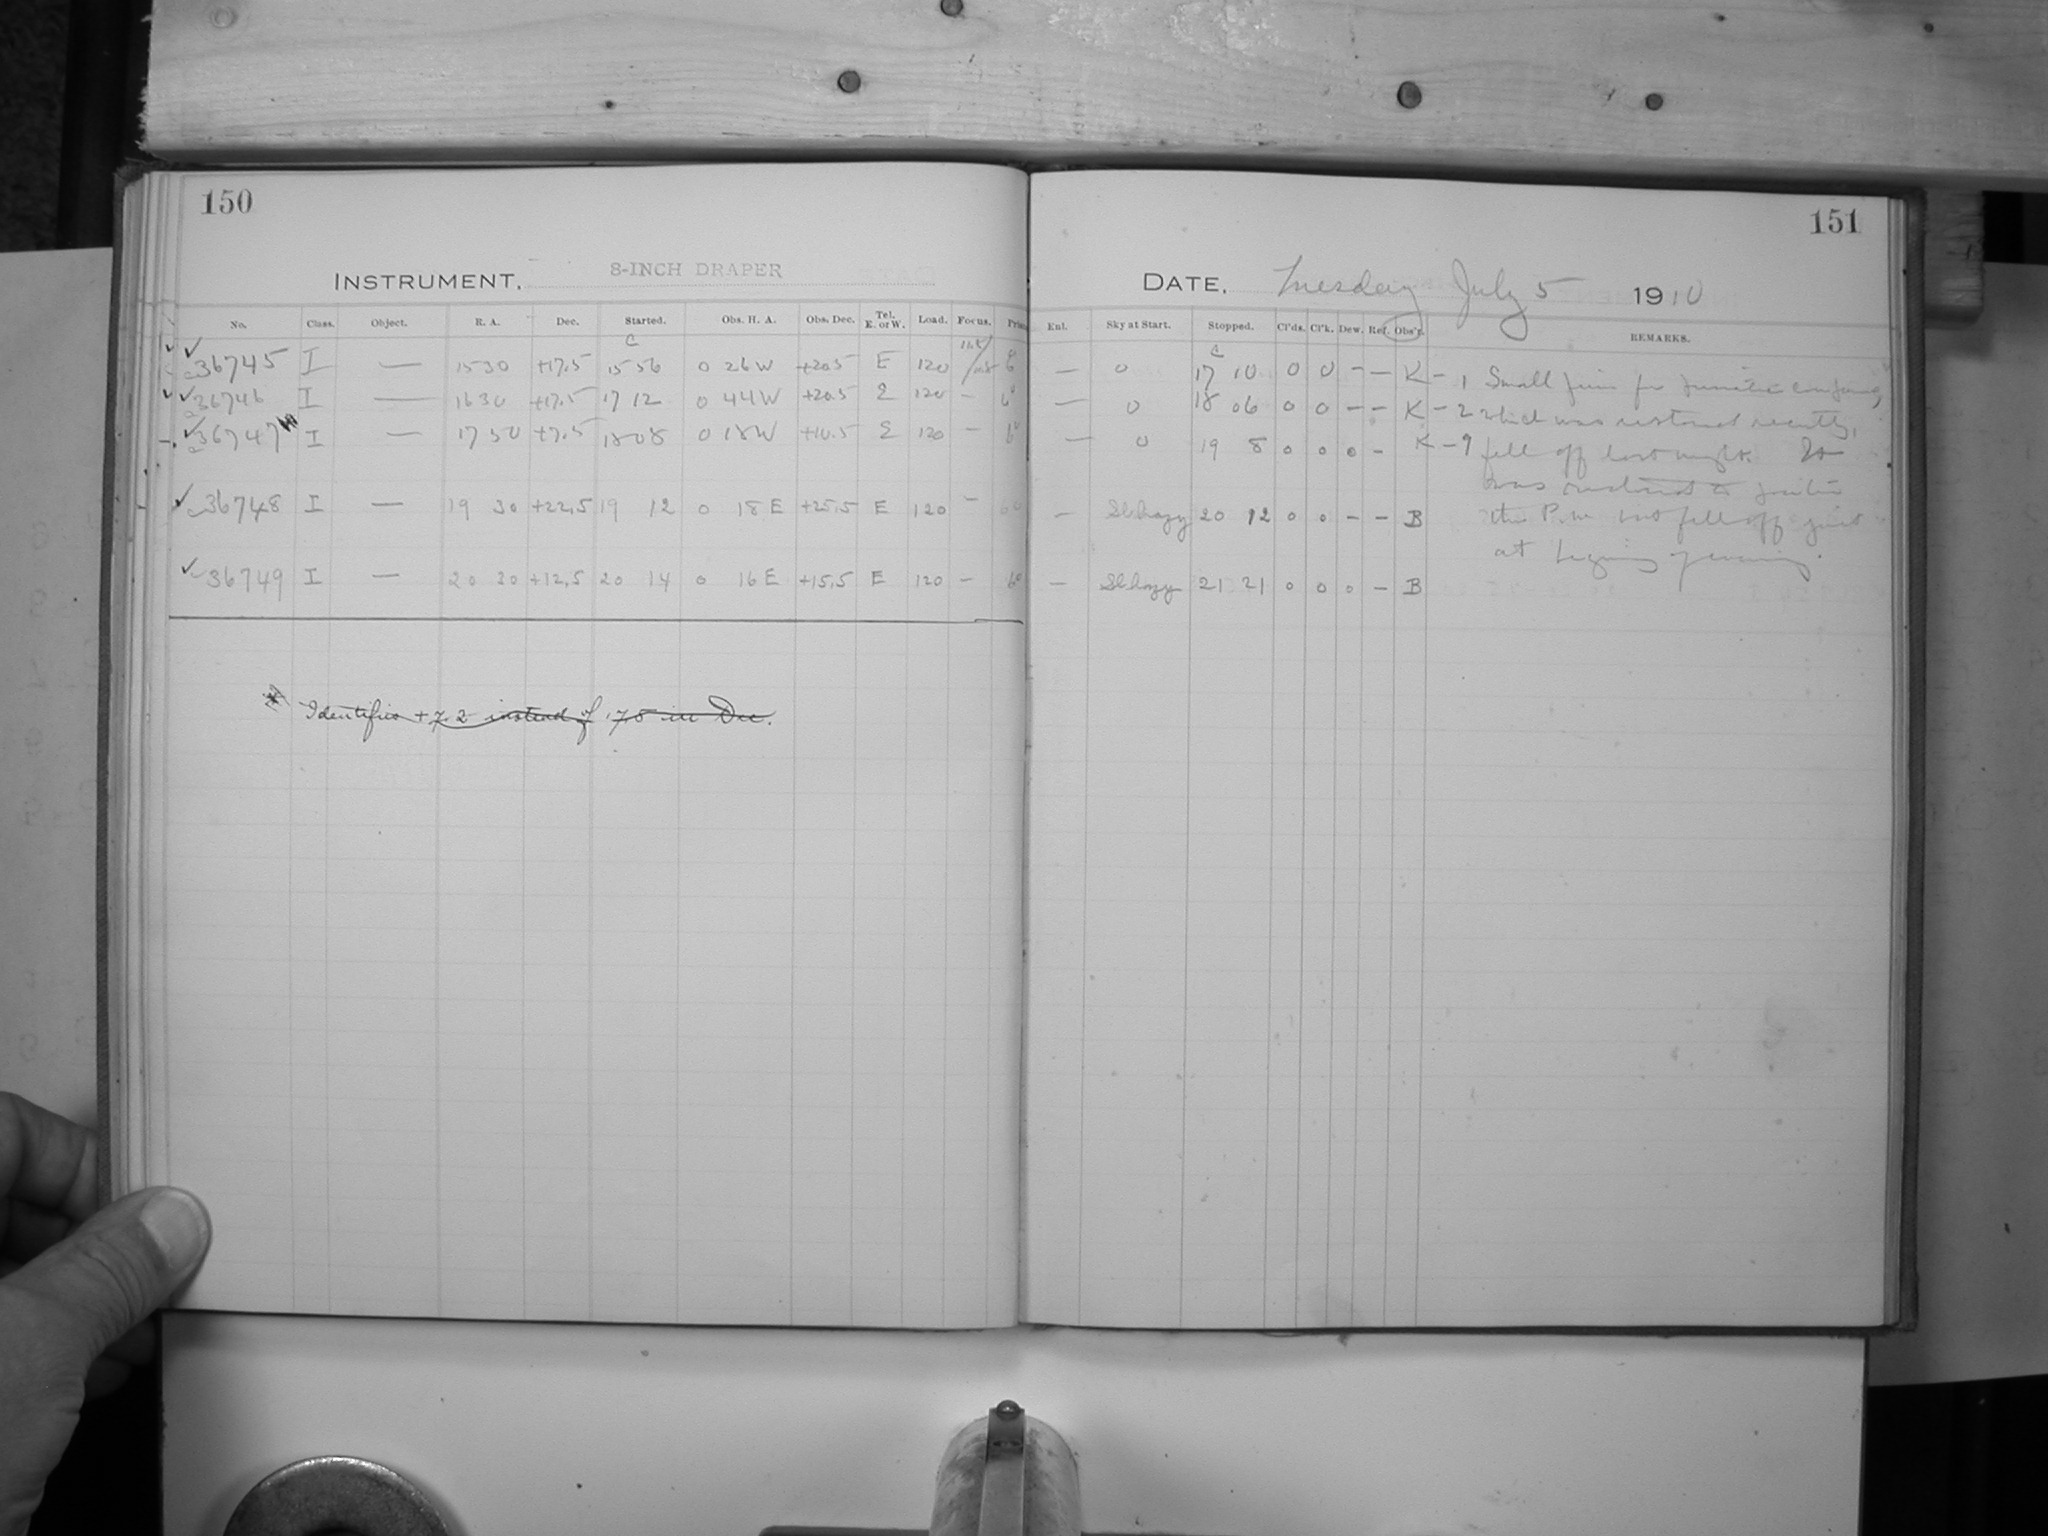 150
INSTRUMENT. 8-INCH DRAPER
No. Class. Object. R. A. Dec. Started. Obs. H. A. Obs. Dec. Tel. E. or W. Load. Focus.
36745 I — 15 30 +17.5 15 56 0 26 W +20.5 E 120
36746 I — 16 30 +17.5 17 12 0 44 W +20.5 E 120 —
36747 I — 17 50 +7.5 18 08 0 18 W +10.5 E 120 —
36748 I — 19 30 +22.5 19 12 0 18 E +25.5 E 120 —
36749 I — 20 30 +12.5 20 14 0 16 E +15.5 E 120 —
Identifies +7.2 instead of 17.5 in Dec.
151
DATE. Tuesday July 5 1910
Enl. Sky at Start. Stopped. Cl'ds. Cl'k. Dew. Ref. Obs'r. REMARKS.
— 0 17 10 0 0 — — K — 1 Small
— 0 18 06 0 0 — — K — 2 which was restored recently,
— 0 19 8 0 0 0 — K — 9 fell off last night. It
was
— Sl hazy 20 12 0 0 — — B the P.M. but fell off just
at evening.
— Sl hazy 21 21 0 0 0 — B